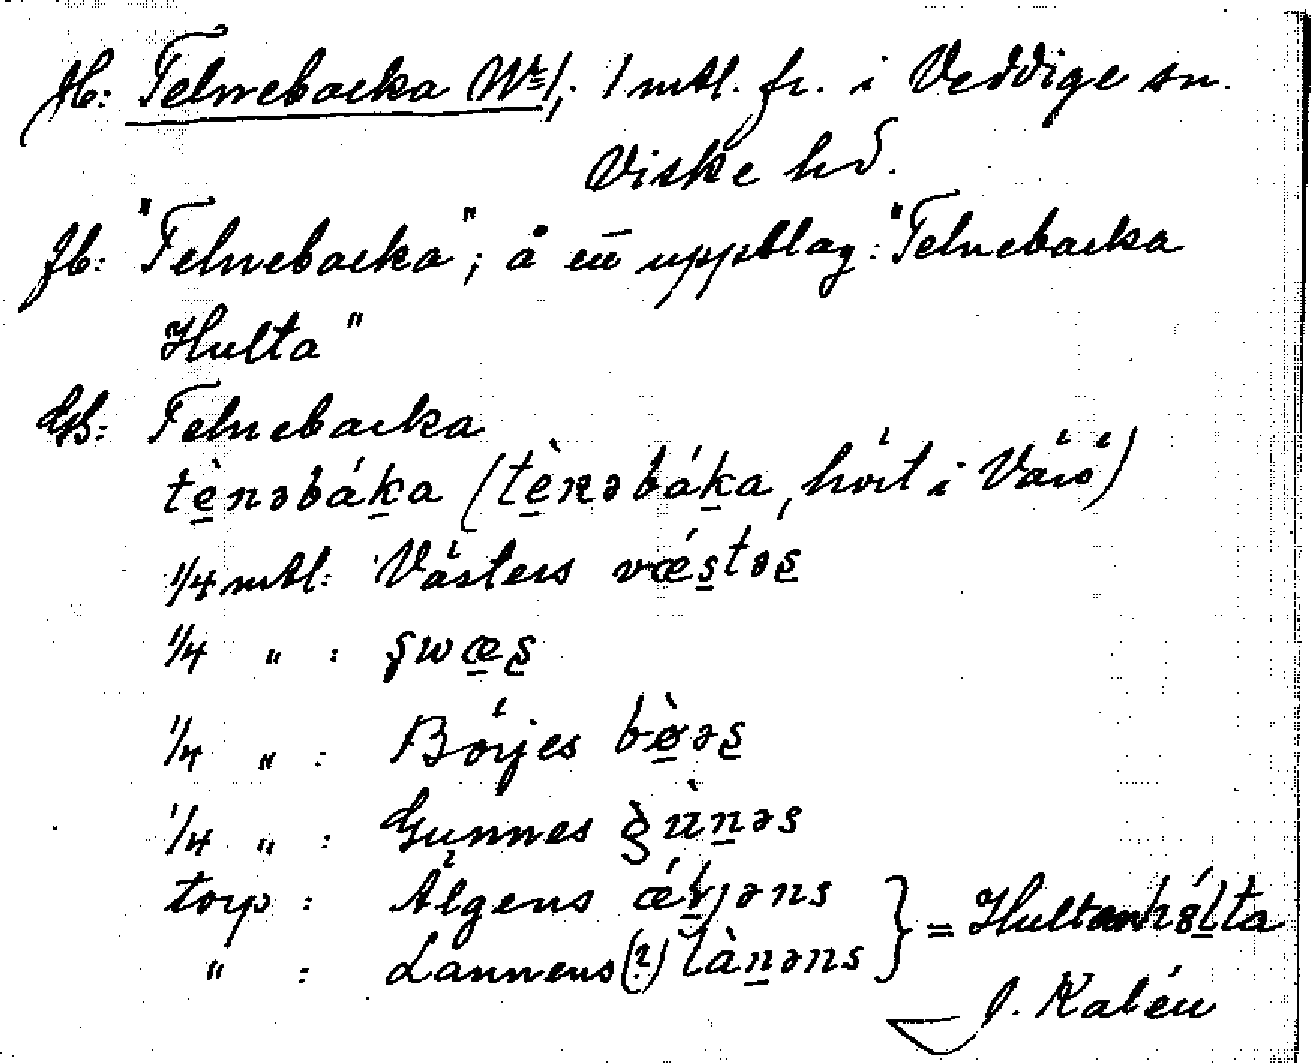 Jb: Telnebacka No 1, 1 mtl. fr. i Veddige sn.
Viske hd.
Jb: "Telnebacka"; å en uppslag: "Telnebacka
Hulta"
GS: Telnebacka
tè̱nəbáḵa (tè̱nəbáḵa, hört i Värö)
1/4 mtl: Västers vǽ̱stəs̱
1/4 " :
1/4 " : Börjes bø̱̀əs̱
1/4 " : Gunnes
torp : Älgens } = Hultan
" : Lannens(?) làṉəns
J. Kalén